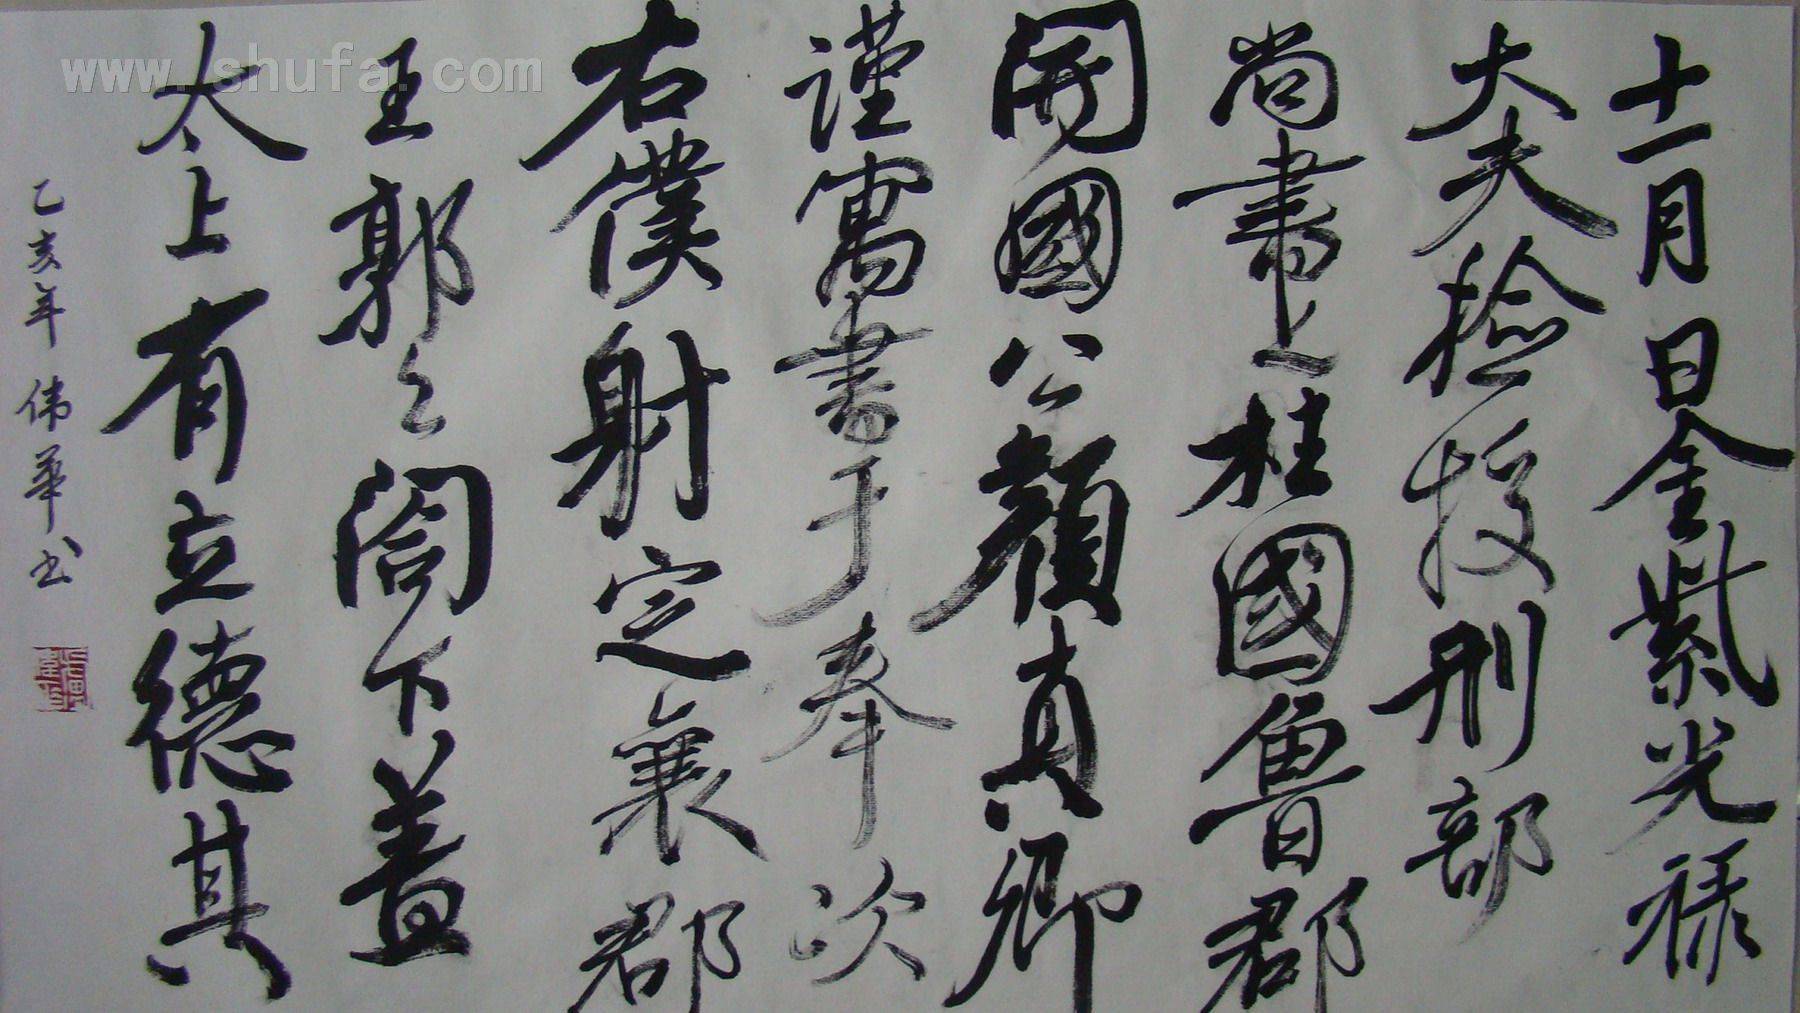 十一月日金紫光禄
大夫检挍刑部
尚書上柱國魯郡
開國公顏真卿
謹寓書于奉次
右僕射定襄郡
王郭之閤下蓋
太上有立德其
乙亥年伟華书
www.shufa.com